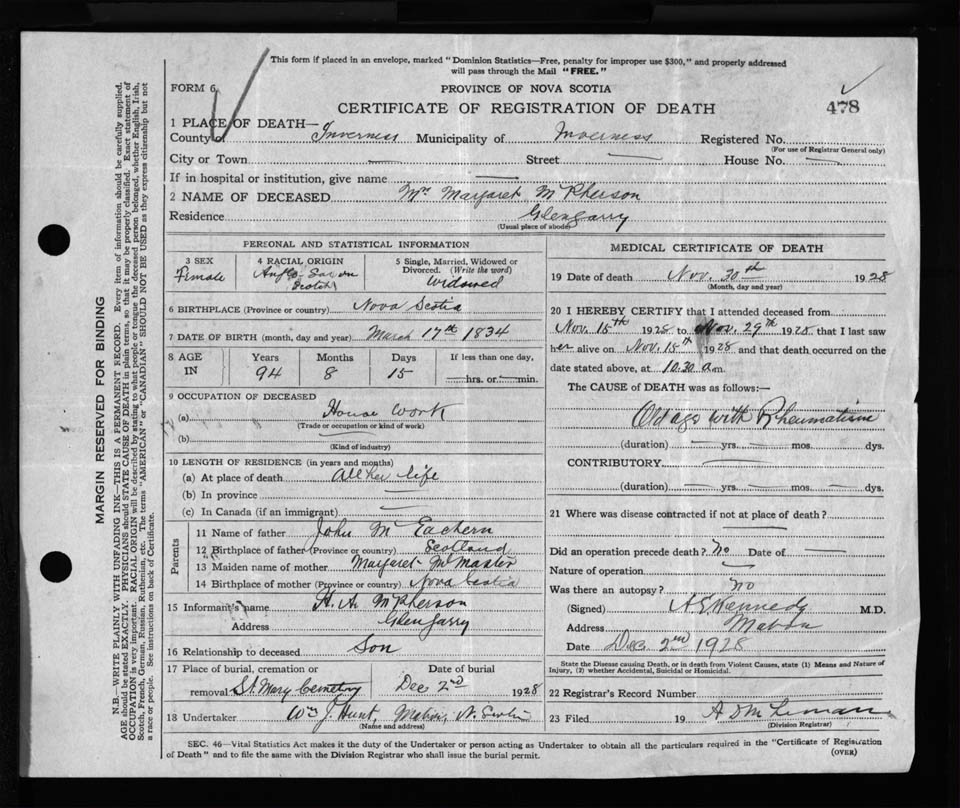 This form if placed in an envelope, marked "Dominion Statistics—Free, penalty for improper use $300," and properly addressed
will pass through the Mail "FREE."
FORM 6
PROVINCE OF NOVA SCOTIA
CERTIFICATE OF REGISTRATION OF DEATH
478
1 PLACE OF DEATH—
County of Inverness Municipality of Inverness Registered No.
(For use of Registrar General only)
City or Town — Street — House No. —
If in hospital or institution, give name —
2 NAME OF DECEASED Mrs Margaret McPherson
Residence Glengarry
(Usual place of abode)
PERSONAL AND STATISTICAL INFORMATION
3 SEX
Female
4 RACIAL ORIGIN
Anglo Saxon
Scotch
5 Single, Married, Widowed or
Divorced. (Write the word)
Widowed
6 BIRTHPLACE (Province or country) Nova Scotia
7 DATE OF BIRTH (month, day and year) March 17th 1834
8 AGE IN
Years Months Days If less than one day,
94 8 15 hrs. or min.
9 OCCUPATION OF DECEASED
(a) House work
(Trade or occupation or kind of work)
(b)
(Kind of industry)
10 LENGTH OF RESIDENCE (in years and months)
(a) At place of death All her life
(b) In province —
(c) In Canada (if an immigrant) —
Parents
11 Name of father John McEachern
12 Birthplace of father (Province or country) Scotland
13 Maiden name of mother Margaret McMaster
14 Birthplace of mother (Province or country) Nova Scotia
15 Informant's name H. A. McPherson
Address Glengarry
16 Relationship to deceased Son
17 Place of burial, cremation or Date of burial
removal St. Mary Cemetry Dec 2nd 1928
18 Undertaker Wm J. Hunt, Mabou, N. Scotia
(Name and address)
MEDICAL CERTIFICATE OF DEATH
19 Date of death Nov. 30th 1928
(Month, day and year)
20 I HEREBY CERTIFY that I attended deceased from
Nov. 15th 1928 to Nov. 29th 1928 that I last saw
her alive on Nov. 15th 1928 and that death occurred on the
date stated above, at 10.30 a.m.
The CAUSE of DEATH was as follows:—
Old age with Rheumatism
(duration) yrs. mos. dys.
CONTRIBUTORY —
(duration) yrs. mos. dys.
21 Where was disease contracted if not at place of death?
—
Did an operation precede death? No Date of —
Nature of operation —
Was there an autopsy? No
(Signed) A E Kennedy M.D.
Address Mabou
Date Dec 2nd 1928
State the Disease causing Death, or in death from Violent Causes, state (1) Means and Nature of
Injury, (2) whether Accidental, Suicidal or Homicidal.
22 Registrar's Record Number
23 Filed 19
(Division Registrar)
SEC. 46—Vital Statistics Act makes it the duty of the Undertaker or person acting as Undertaker to obtain all the particulars required in the "Certificate of Registration
of Death" and to file the same with the Division Registrar who shall issue the burial permit.
(OVER)
MARGIN RESERVED FOR BINDING
N.B.—WRITE PLAINLY WITH UNFADING INK—THIS IS A PERMANENT RECORD. Every item of information should be carefully supplied.
AGE should be stated EXACTLY. PHYSICIANS should STATE CAUSE OF DEATH in plain terms, so that it may be properly classified. Exact statement of
OCCUPATION is very important. RACIAL ORIGIN will be described by stating to what people or tongue the deceased person belonged, whether English, Irish,
Scotch, French, German, Russian, Ruthenian, etc. The terms "AMERICAN" or "CANADIAN" SHOULD NOT BE USED as they express citizenship but not
a race or people. See instructions on back of Certificate.